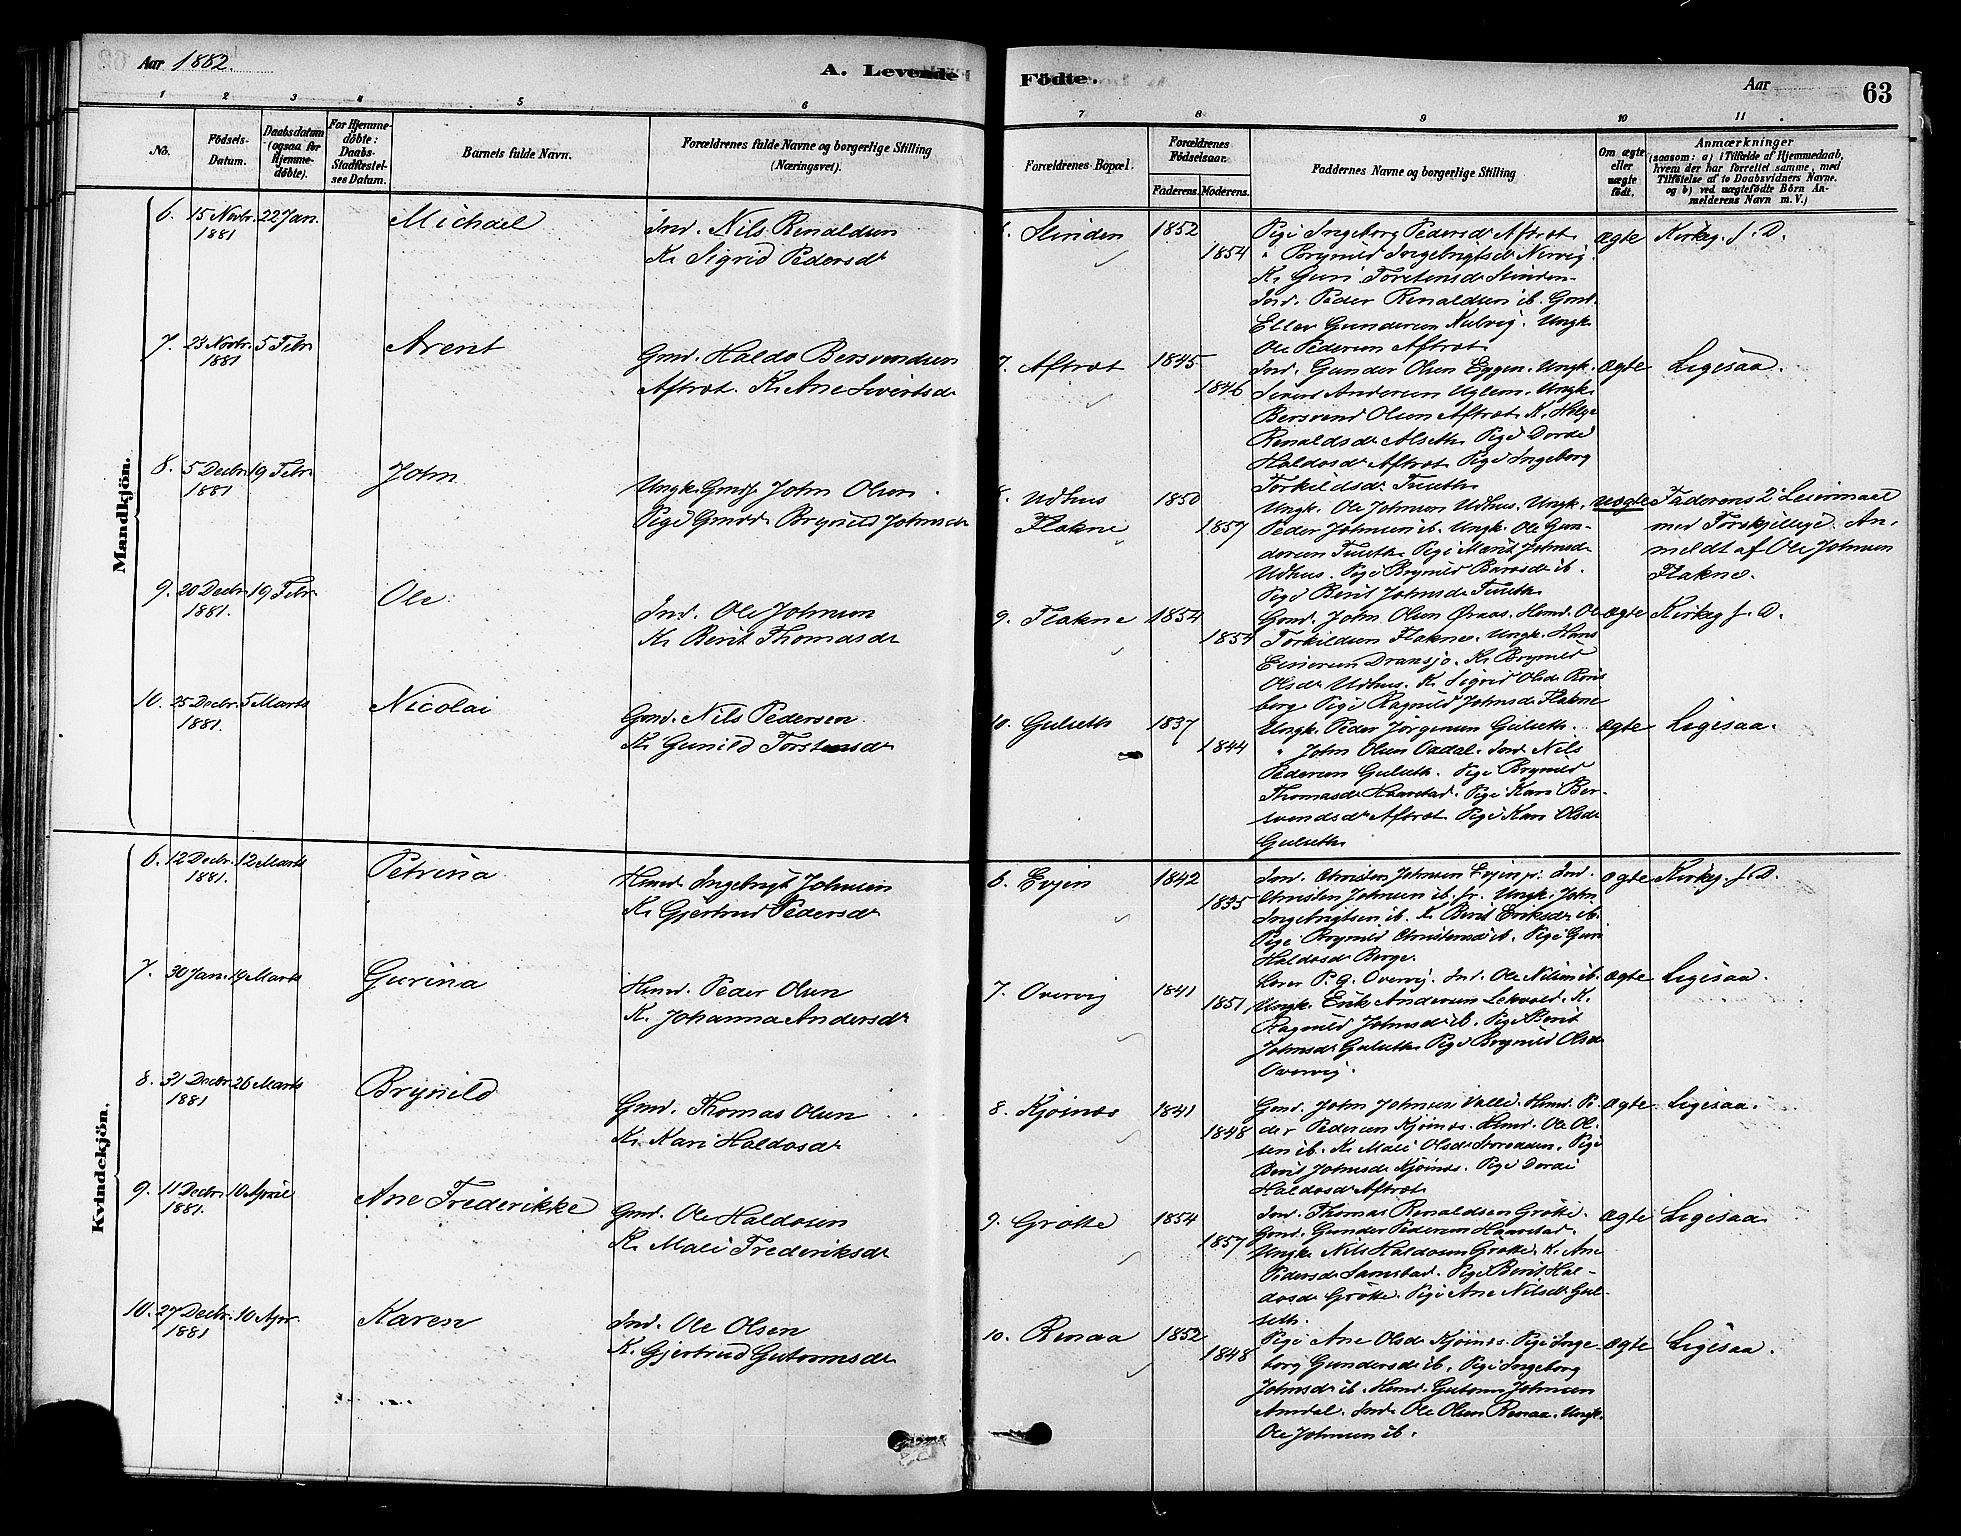 Aar 1882.
A. Levende Födte.
Aar
63
1 2 3 4 5 6 7 8 9 10 11
No.
Födsels-Datum.
Daabsdatum (ogsaa for Hjemme-døbte).
For Hjemme-döbte: Daabs-Stadfæstel-ses Datum.
Barnets fulde Navn.
Forældrenes fulde Navne og borgerlige Stilling (Næringsvei).
Forældrenes Bopæl.
Forældrenes Födselsaar.
Faderens. Moderens.
Faddernes Navne og borgerlige Stilling
Om ægte eller uægte födt.
Anmærkninger
(saasom: a) i Tilfælde af Hjemmedaab, hvem der har forrettet samme, med Tilföielse af to Daabsvidners Navne. og b) ved uægtefödte Börn An-melderens Navn m. V.)
Mandkjön.
6. 15 Novbr. 1881 22 Jan. Michael
Ind. Nils Renaldsen
K. Sigrid Pedersdr
6. Slinden 1852 1854
Pige Ingeborg Pedersdr Aftrøt
" Brynild Ingebrigtsdr Nervig.
K. Guri Torstensdr Slinden
Ind. Peder Renaldsen ib. Gmd.
Ellev Gundersen Kulvig. Ungk.
Ole Pedersen Aftrøt
ægte Kirkeg. f. D.
7. 23 Novbr. 1881 5 Febr. Arent
Gmd. Haldo Bersvendsen
Aftrøt. K. Ane Sivertsdr
7. Aftrøt 1845 1846
Ind. Gunder Olsen Eggen. Ungk.
Sivert Andersen Uglem. Ungk.
Bersvend Olsen Aftrøt K. Helge
Renaldsdr Alseth. Pige Dorde
Haldosdr Aftrøt Pige Ingeborg
Torkildsdr Tuseth
ægte Ligesaa.
8. 5 Decbr. 1881 19 Febr. John
Ungk. Gmds. John Olsen.
Pige Gmdd. Brynild Johnsdr
8. Udhus Flakne 1850 1857
Ungk. Ole Johnsen Udhus. Ungk.
Peder Johnsen ib. Ungk. Ole Gun-
dersen Tuseth. Pige Marit Johnsdr
Udhus. Pige Brynild Baardsdr ib.
Pige Berit Johnsdr Tuseth
uægte Faderens 2 Leiermaal
med Forskjellige. An-
meldt af Ole Johnsen
Flakne.
9. 20 Decbr. 1881. 19 Febr. Ole
Ind. Ole Johnsen
K. Berit Thomasdr
9. Flakne 1854 1854
Gmd. John Olsen Øraas. Hmd. Ole
Torkildsen Flakne. Ungk. Hans
Dransjo. K. Brynild
Olsdr Udhus. K. Sigrid Olsdr Røris
berg Pige Ragnild Johnsdr Flakne
ægte Kirkeg. f. D.
10. 25 Decbr. 1881. 5 Marts Nicolai
Gmd. Nils Pedersen
K. Gunild Torstensdr
10. Gulseth 1837 1844
Ungk. Peder Jørgensen Gulseth.
" John Olsen Aadal. Ind. Nils
Pedersen Gulseth. Pige Brynild
Thomasdr Haarstad. Pige Kari Ber-
svendsdr Aftrøt Pige Kari Olsdr
Gulseth
ægte Ligesaa.
Kvindekjön.
6. 12 Decbr. 1881. 12 Marts Petrina
Hmd. Ingebrigt Johnsen
K. Gjertrud Pedersdr
6. Evjen 1842 1835
Ind. Christen Johnsen Evjen s. Ind.
Christen Johnsen ib. jr. Ungk. John
Ingebrigtsen ib. K. Berit Eriksdr ib.
Pige Brynild Christensdr ib. Pige Guri
Haldosdr Berge.
ægte Kirkeg. f. D.
7. 30 Jan. 19 Marts Gurina
Hmd. Peder Olsen
K. Johanna Andersdr
7. Overvig 1841 1851
Lærer P. G. Overvig. Ind. Ole Nilsen ib.
Ungk. Erik Andersen Lekvold. K.
Ragnild Johnsdr ib. Pige Berit
Johnsdr Gulseth Pige Brynild Olsdr
Overvig.
ægte Ligesaa.
8. 31 Decbr. 1881 26 Marts Brynild
Gmd. Thomas Olsen
K. Kari Haldosdr
8. Kjøinøs 1841 1848
Gmd. John Johnsen Valle. Hmd. Pe-
der Pedersen Kjøinøs. Hmd. Ole Ol-
sen ib. K. Mali Olsdr Storaasen. Pige
Berit Johnsdr Kjøinøs. Pige Dorde
Haldosdr Aftrøt
ægte Ligesaa.
9. 11 Decbr. 1881. 10 April Ane Frederikke
Gmd. Ole Haldosen
K. Mali Frederiksdr
9. Grøtte 1854 1857
Ind. Thomas Renaldsen Grøtte.
Gmd. Gunder Pedersen Haarstad.
Ungk. Nils Haldosen Grøtte. K. Ane
Pedersdr Samstad. Pige Berit Hal-
dosdr Grøtte. Pige Ane Nilsdr Gul-
seth.
ægte Ligesaa
10. 27 Decbr. 1881 10 Apr. Karen
Ind. Ole Olsen
K. Gjertrud Gutormsdr
10. Renaa 1852 1848
Pige Ane Olsdr Kjøinøs Pige Inge-
borg Gundersdr ib. Pige Ingeborg
Johnsdr ib. Hmd. Gutorm Johnsen
Amdal. Ind. Ole Olsen Renaa. Ungk.
Ole Johnsen ib.
ægte Ligesaa.